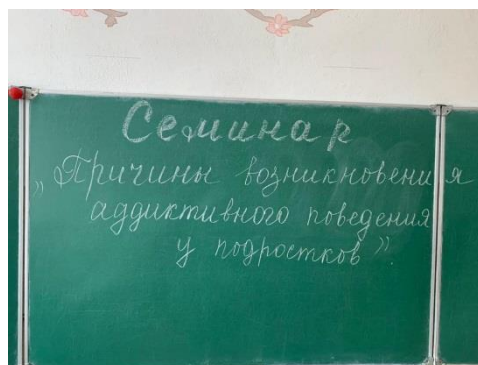 Семинар
„Причины возникновения
аддиктивного поведения
у подростков”.